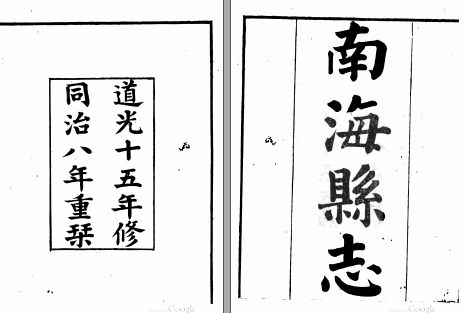 南海縣志
道光十五年修
同治八年重栞
Google
Google